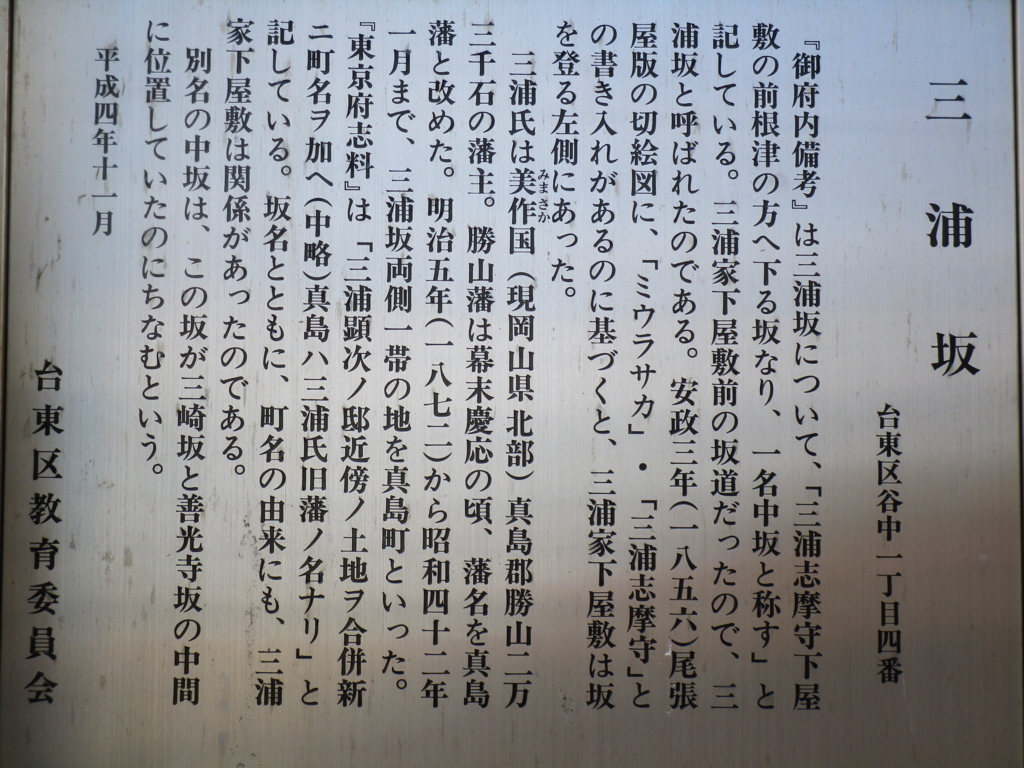 三浦坂
台東区谷中一丁目四番
『御府内備考』は三浦坂について、「三浦志摩守下屋
敷の前根津の方へ下る坂なり、一名中坂と称す」と
記している。三浦家下屋敷前の坂道だったので、三
浦坂と呼ばれたのである。安政三年(一八五六)尾張
屋版の切絵図に、「ミウラサカ」・「三浦志摩守」と
の書き入れがあるのに基づくと、三浦家下屋敷は坂
を登る左側にあった。
三浦氏は美作国(現岡山県北部)真島郡勝山二万
みまさか
三千石の藩主。勝山藩は幕末慶応の頃、藩名を真島
藩と改めた。明治五年(一八七二)から昭和四十二年
一月まで、三浦坂両側一帯の地を真島町といった。
『東京府志料』は「三浦顕次ノ邸近傍ノ土地ヲ合併新
ニ町名ヲ加ヘ(中略)真島ハ三浦氏旧藩ノ名ナリ」と
記している。坂名とともに、町名の由来にも、三浦
家下屋敷は関係があったのである。
別名の中坂は、この坂が三崎坂と善光寺坂の中間
に位置していたのにちなむという。
平成四年十一月
台東区教育委員会